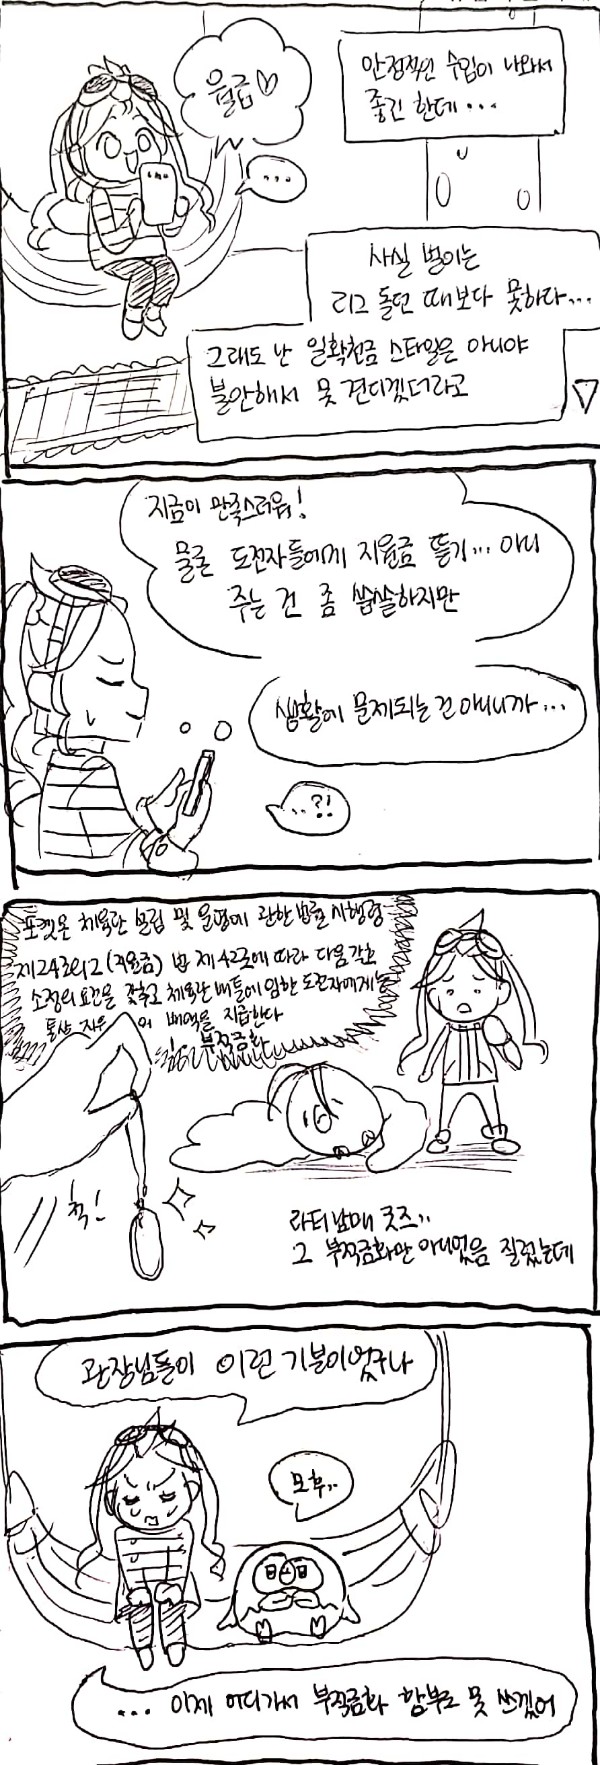 월급♡
안정적인 수입이 나와서
좋긴 한데...
...
사실 벌이는
리그 돌던 때보다 못하다...
그래도 난 일확천금 스타일은 아니야
불안해서 못 견디겠더라고
지금이 만족스러워!
물론 도전자들에게 지원금 뜯기... 아니
주는 건 좀 씁쓸하지만
생활에 문제되는 건 아니니까...
..?!
포켓몬 체육관 설립 및 운영에 관한 법률 시행령
제24조의2 (지원금) 법 제42조에 따라 다음 각호
소정의 요건을 갖추고 체육관 배틀에 임한 도전자에게는
통상 지우 의 배액을 지급한다
1. 부적금화
척!
라티남매 굿즈..
그 부적금화만 아니었음 질렀는데
관장님들이 이런 기분이었구나
모후..
... 이제 어디가서 부적금화 함부로 못 쓰겠어